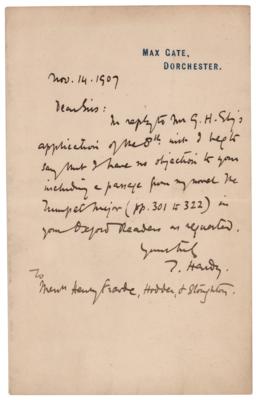 MAX GATE,
DORCHESTER.
Nov. 14. 1907
Dear Sirs:
In reply to Mr G. H. Ely's
application of the 8th inst. I beg to
say that I have no objection to your
including a passage from my novel The
Trumpet Major (pp. 301 to 322) in
your Oxford Readers as requested.
Yours truly
T. Hardy.
To
Messrs Henry Frowde, Hodder, & Stoughton.